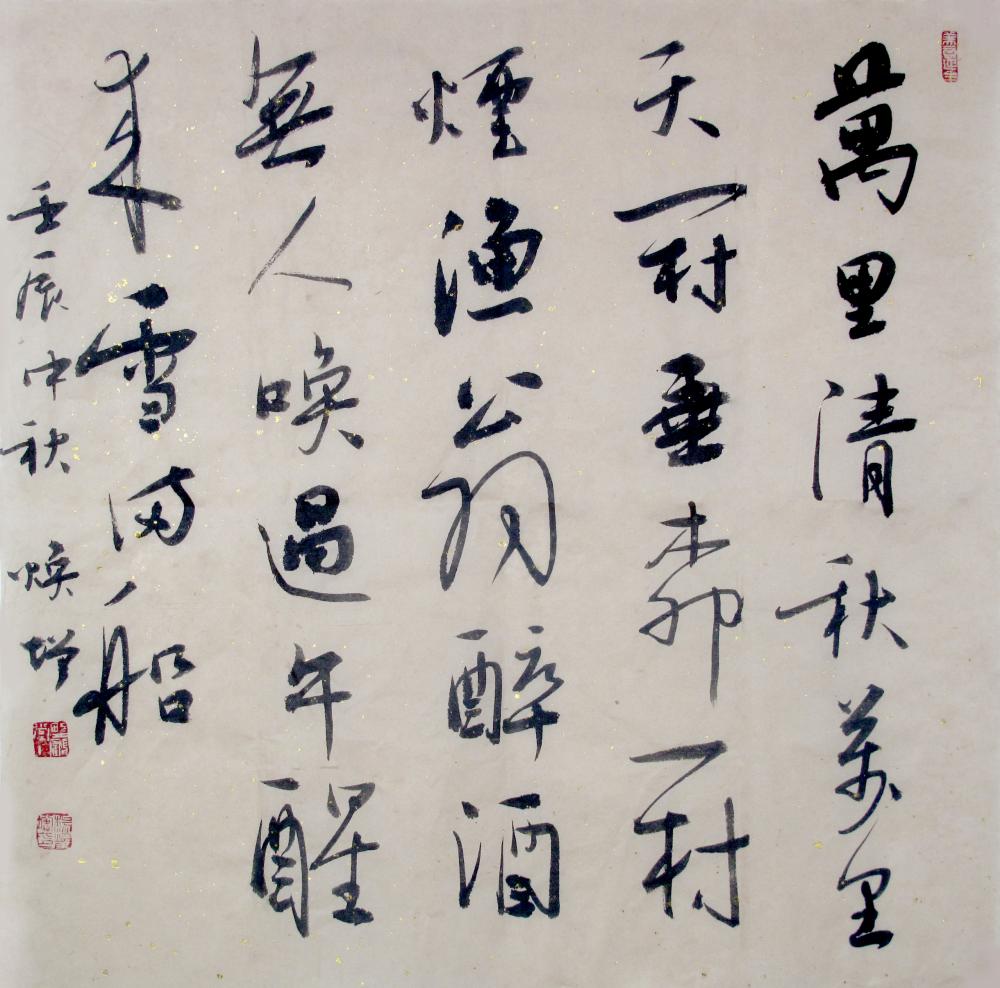 萬里清秋萬里
天一村垂柳一村
煙漁翁醉酒
無人喚過午醒
來雪滿船
壬辰中秋 煥增